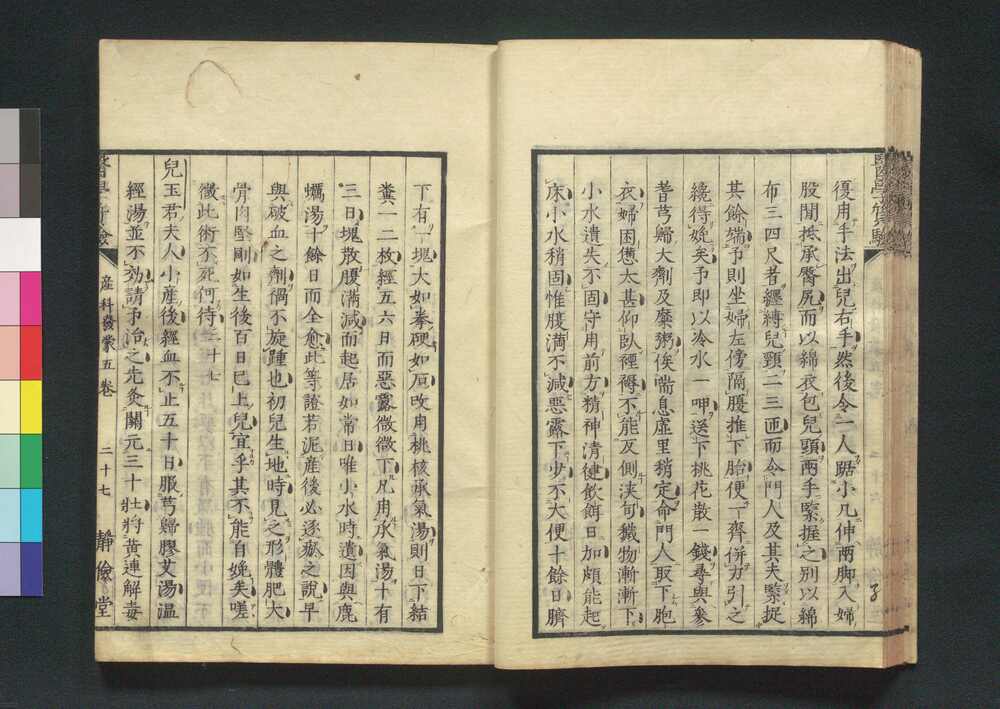 醫學實驗
復用手法出兒右手然後令一人踞小凡伸兩脚入婦
股間抵承臀尻而以綿衣包兒頭兩手緊握之別以綿
布三四尺者纏縛兒頸二三匝而令門人及其夫緊捉
其餘端予則坐婦左傍隔腹推下胎便一齊併力引之
纔得娩矣予即以冷水一呷送下桃花散一錢尋與參
耆芎歸大劑及糜粥俟喘息虛里稍定命門人取下胞
衣婦困憊太甚仰臥裀褥不能反側浹旬穢物漸漸下
小水遺失不固守用前方精神清健飲餌日加頗能起
床小水稍固惟腹滿不減惡露下少不大便十餘日臍
下有一塊大如拳硬如石改用桃核承氣湯則日下結
糞一二枚經五六日而惡露微微下凡用承氣湯十有
三日塊散腹滿減而起居如常日唯小水時遺因與鹿
蠣湯十餘日而全愈此等證若泥産後必逐瘀之說早
與破血之劑禍不旋踵也初兒生地時見之形體肥大
骨肉堅剛如生後百日已上兒宜乎其不能自娩矣嗟
微此術不死何待二十七
兒玉君夫人小産後經血不止五十日服芎歸膠艾湯溫
經湯並不効請予治之先灸關元三十壯將黃連解毒
産科發蒙五卷
二十七
靜儉堂